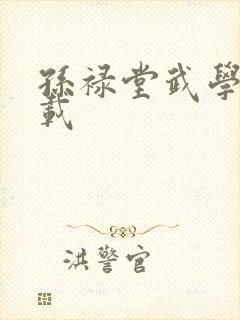 孫祿堂武學
載
洪警官